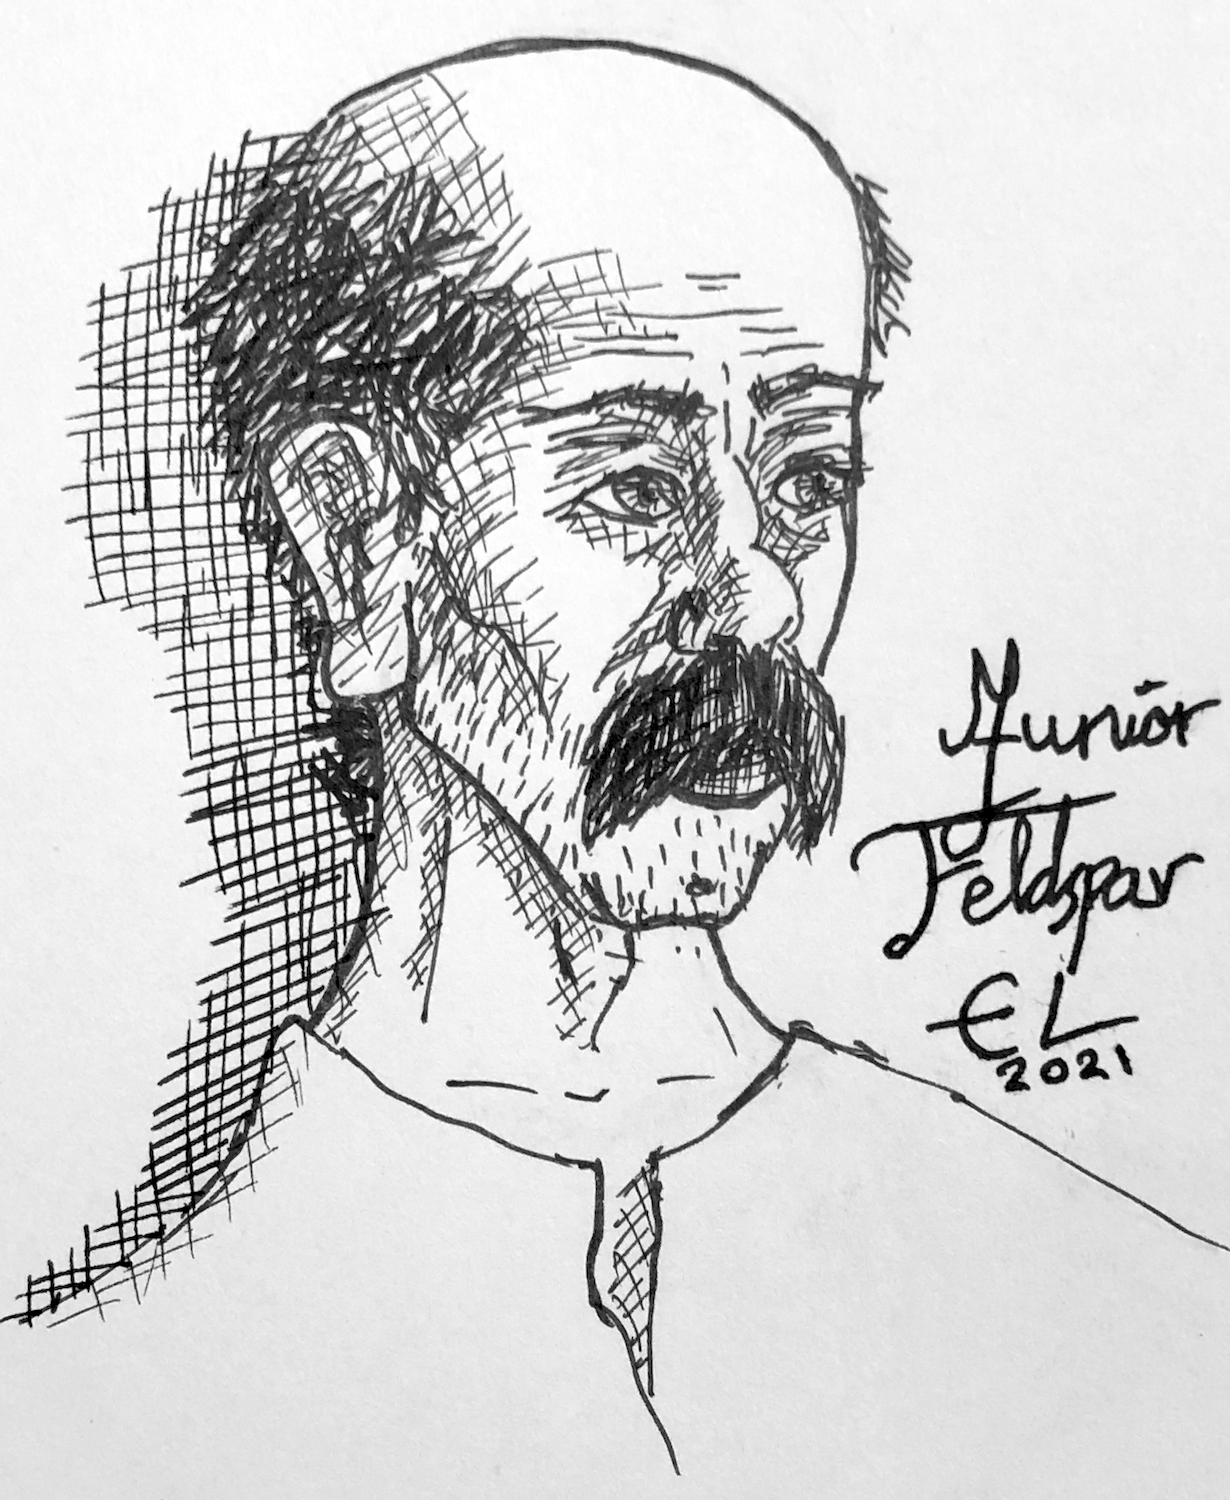 Junior
Feldspar
EL
2021